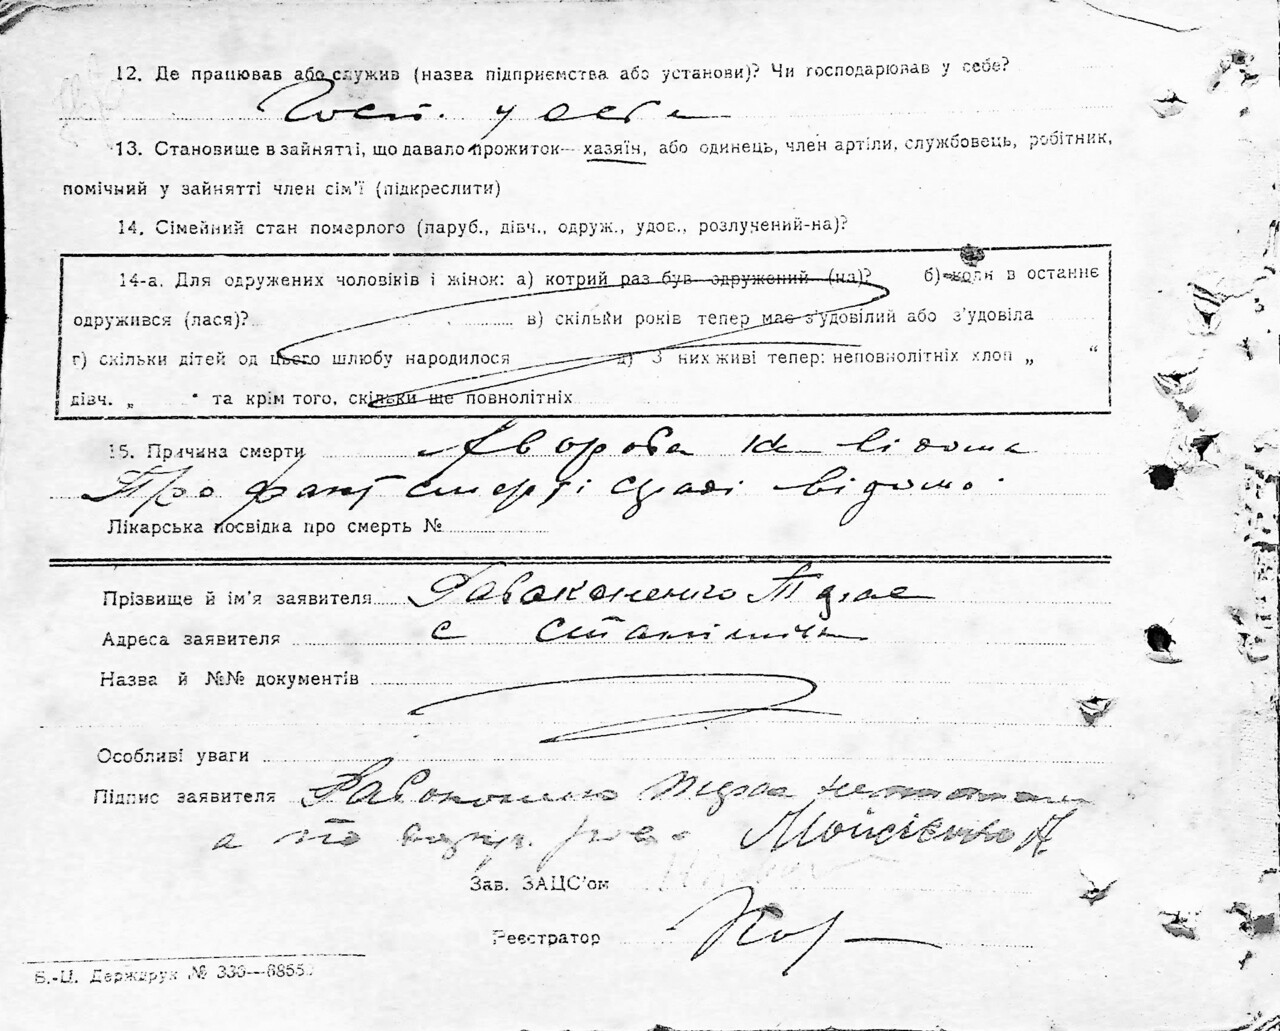 12. Де працював або служив (назва підприємства або установи)? Чи господарював у себе?
Госп. у себе
13. Становище в зайнятті, що давало прожиток— хазяїн, або одинець, член артіли, службовець, робітник,
помічний у зайнятті член сім'ї (підкреслити)
14. Сімейний стан померлого (паруб., дівч., одруж., удов., розлучений-на)?
14-а. Для одружених чоловіків і жінок: а) котрий раз був одружений (на)? б) коли в останнє
одружився (лася)? в) скільки років тепер має з'удовілий або з'удовіла
г) скільки дітей од цього шлюбу народилося д) З них живі тепер: неповнолітніх хлоп „ “
дівч. „ “ та крім того, скільки ще повнолітніх
15. Причина смерти Хвороба не відома
Про факт смерті сраді відомо.
Лікарська посвідка про смерть №
Прізвище й ім'я заявителя
Адреса заявителя с
Назва й №№ документів
Особливі уваги
Підпис заявителя
а по Мойсієнко А
Зав. ЗАЦС'ом
Реєстратор
Б.-Ц. Держдрук № 330—6855